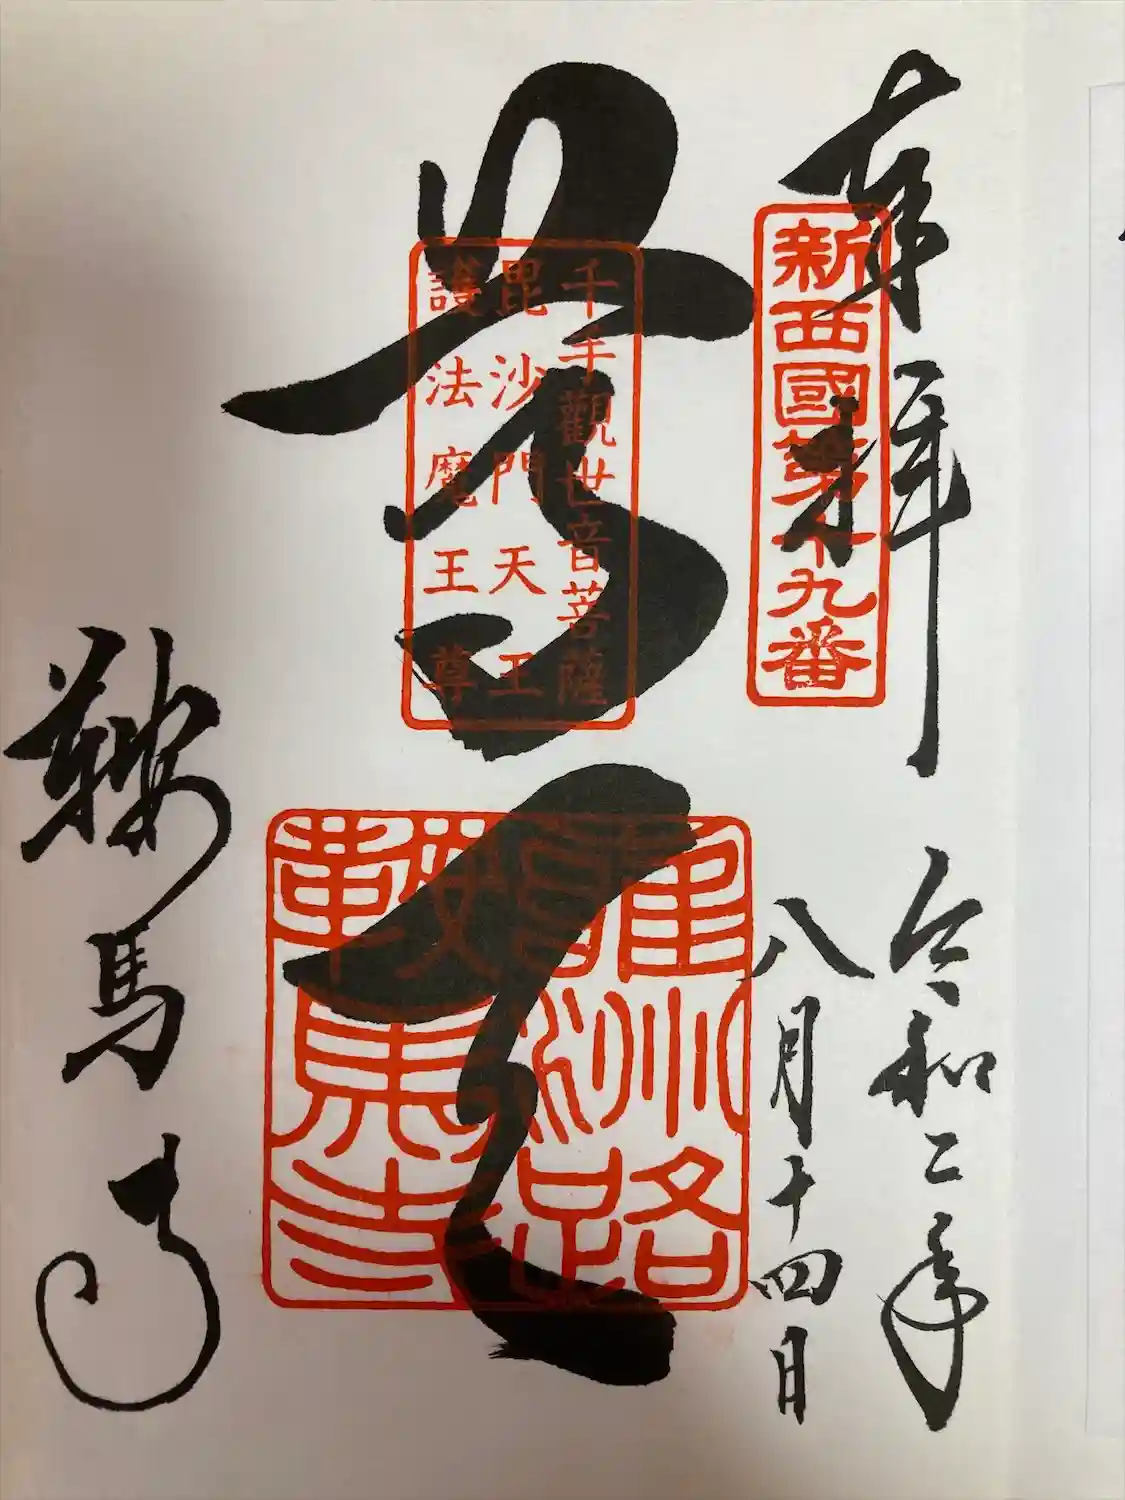 奉拝
令和二年
八月十四日
新西國第十九番
尊天
千手觀世音菩薩
毘沙門天王
護法魔王尊
州路
鞍馬寺
鞍馬寺